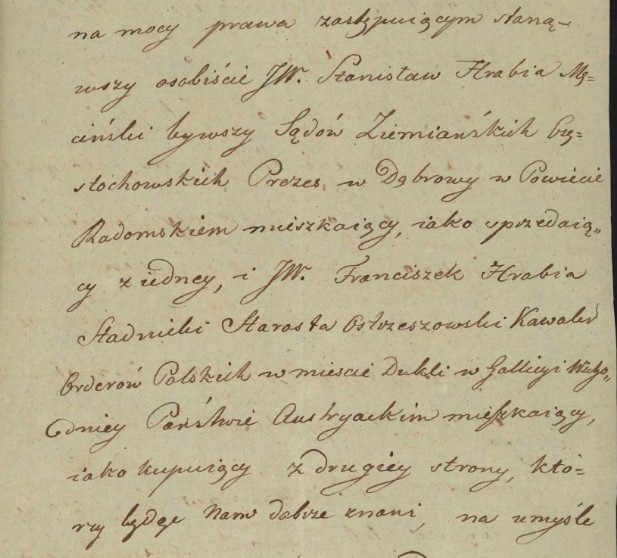 na mocy prawa zastępuiącym staną-
wszy osobiście JW. Stanisław Hrabia Mę-
ciński bywszy Sądów Ziemiańskich Czę-
stochowskich Prezes, w Dąbrowy w Powiecie
Radomskiem mieszkaiący, iako sprzedaią„
cy z iedney, i JW. Franciszek Hrabia
Stadnicki Starosta Ostrzeszowski Kawaler
Orderów Polskich w mieście Dukli w Gallicyi Wscho„
dniey Państwie Austryackim mieszkaiący,
iako kupuiący z drugiéy strony, któ-
rzy będąc Nam dobrze znani, na umyśle